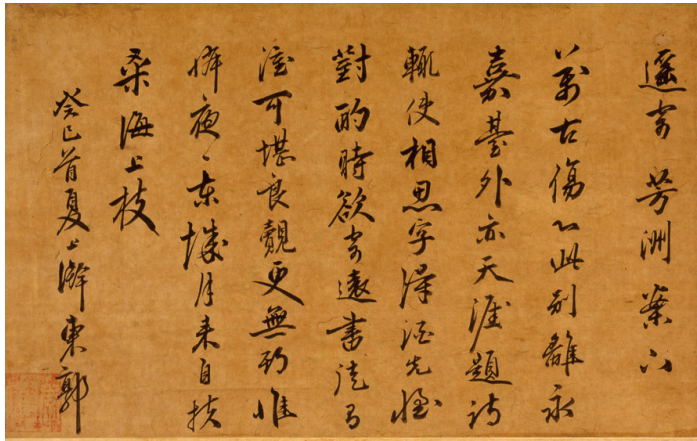 遙寄芳洲案下
萬古傷心此別離永
嘉臺外亦天涯題詩
輒使相思字得酒先
對酌時欲寄遠書
可堪良覿更無期惟
憐夜〻東城月来自扶
桑海上枝
癸巳首夏上澣東郭